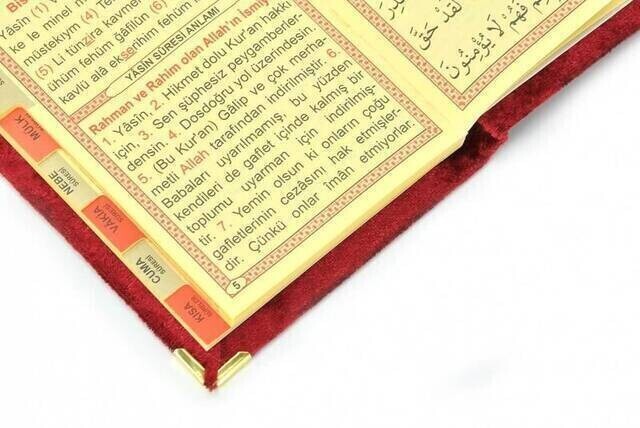 Yâsîn (1)
ke le minel
müstekıym (4)
(5) Li tünzira kavmen
ühüm fehüm ğâfilûn (6)
kavlü alâ ekserihim fehüm
YASİN SÛRESİ ANLAMI
Rahman ve Rahim olan Allah'ın İsmiyle
1. Yâsîn, 2. Hikmet dolu Kur'an hakkı
için, 3. Sen şüphesiz peygamberler-
densin. 4. Dosdoğru yol üzerindesin.
5. (Bu Kur'an) Gâlip ve çok merha-
metli Allah tarafından indirilmiştir. 6.
Babaları uyarılmamış, bu yüzden
kendileri de gaflet içinde kalmış bir
toplumu uyarman için indirilmiş-
tir. 7. Yemin olsun ki onların çoğu
gafletlerinin cezâsını hak etmişler-
dir. Çünkü onlar îmân etmiyorlar.
5
لَقَدْ حَقَّ
فَهُمْ لَا يُؤْمِنُونَ
MÜLK
SÛRESİ
NEBE
SÛRESİ
VÂKIA
SÛRESİ
CUMA
SÛRESİ
KISA
SÛRELER